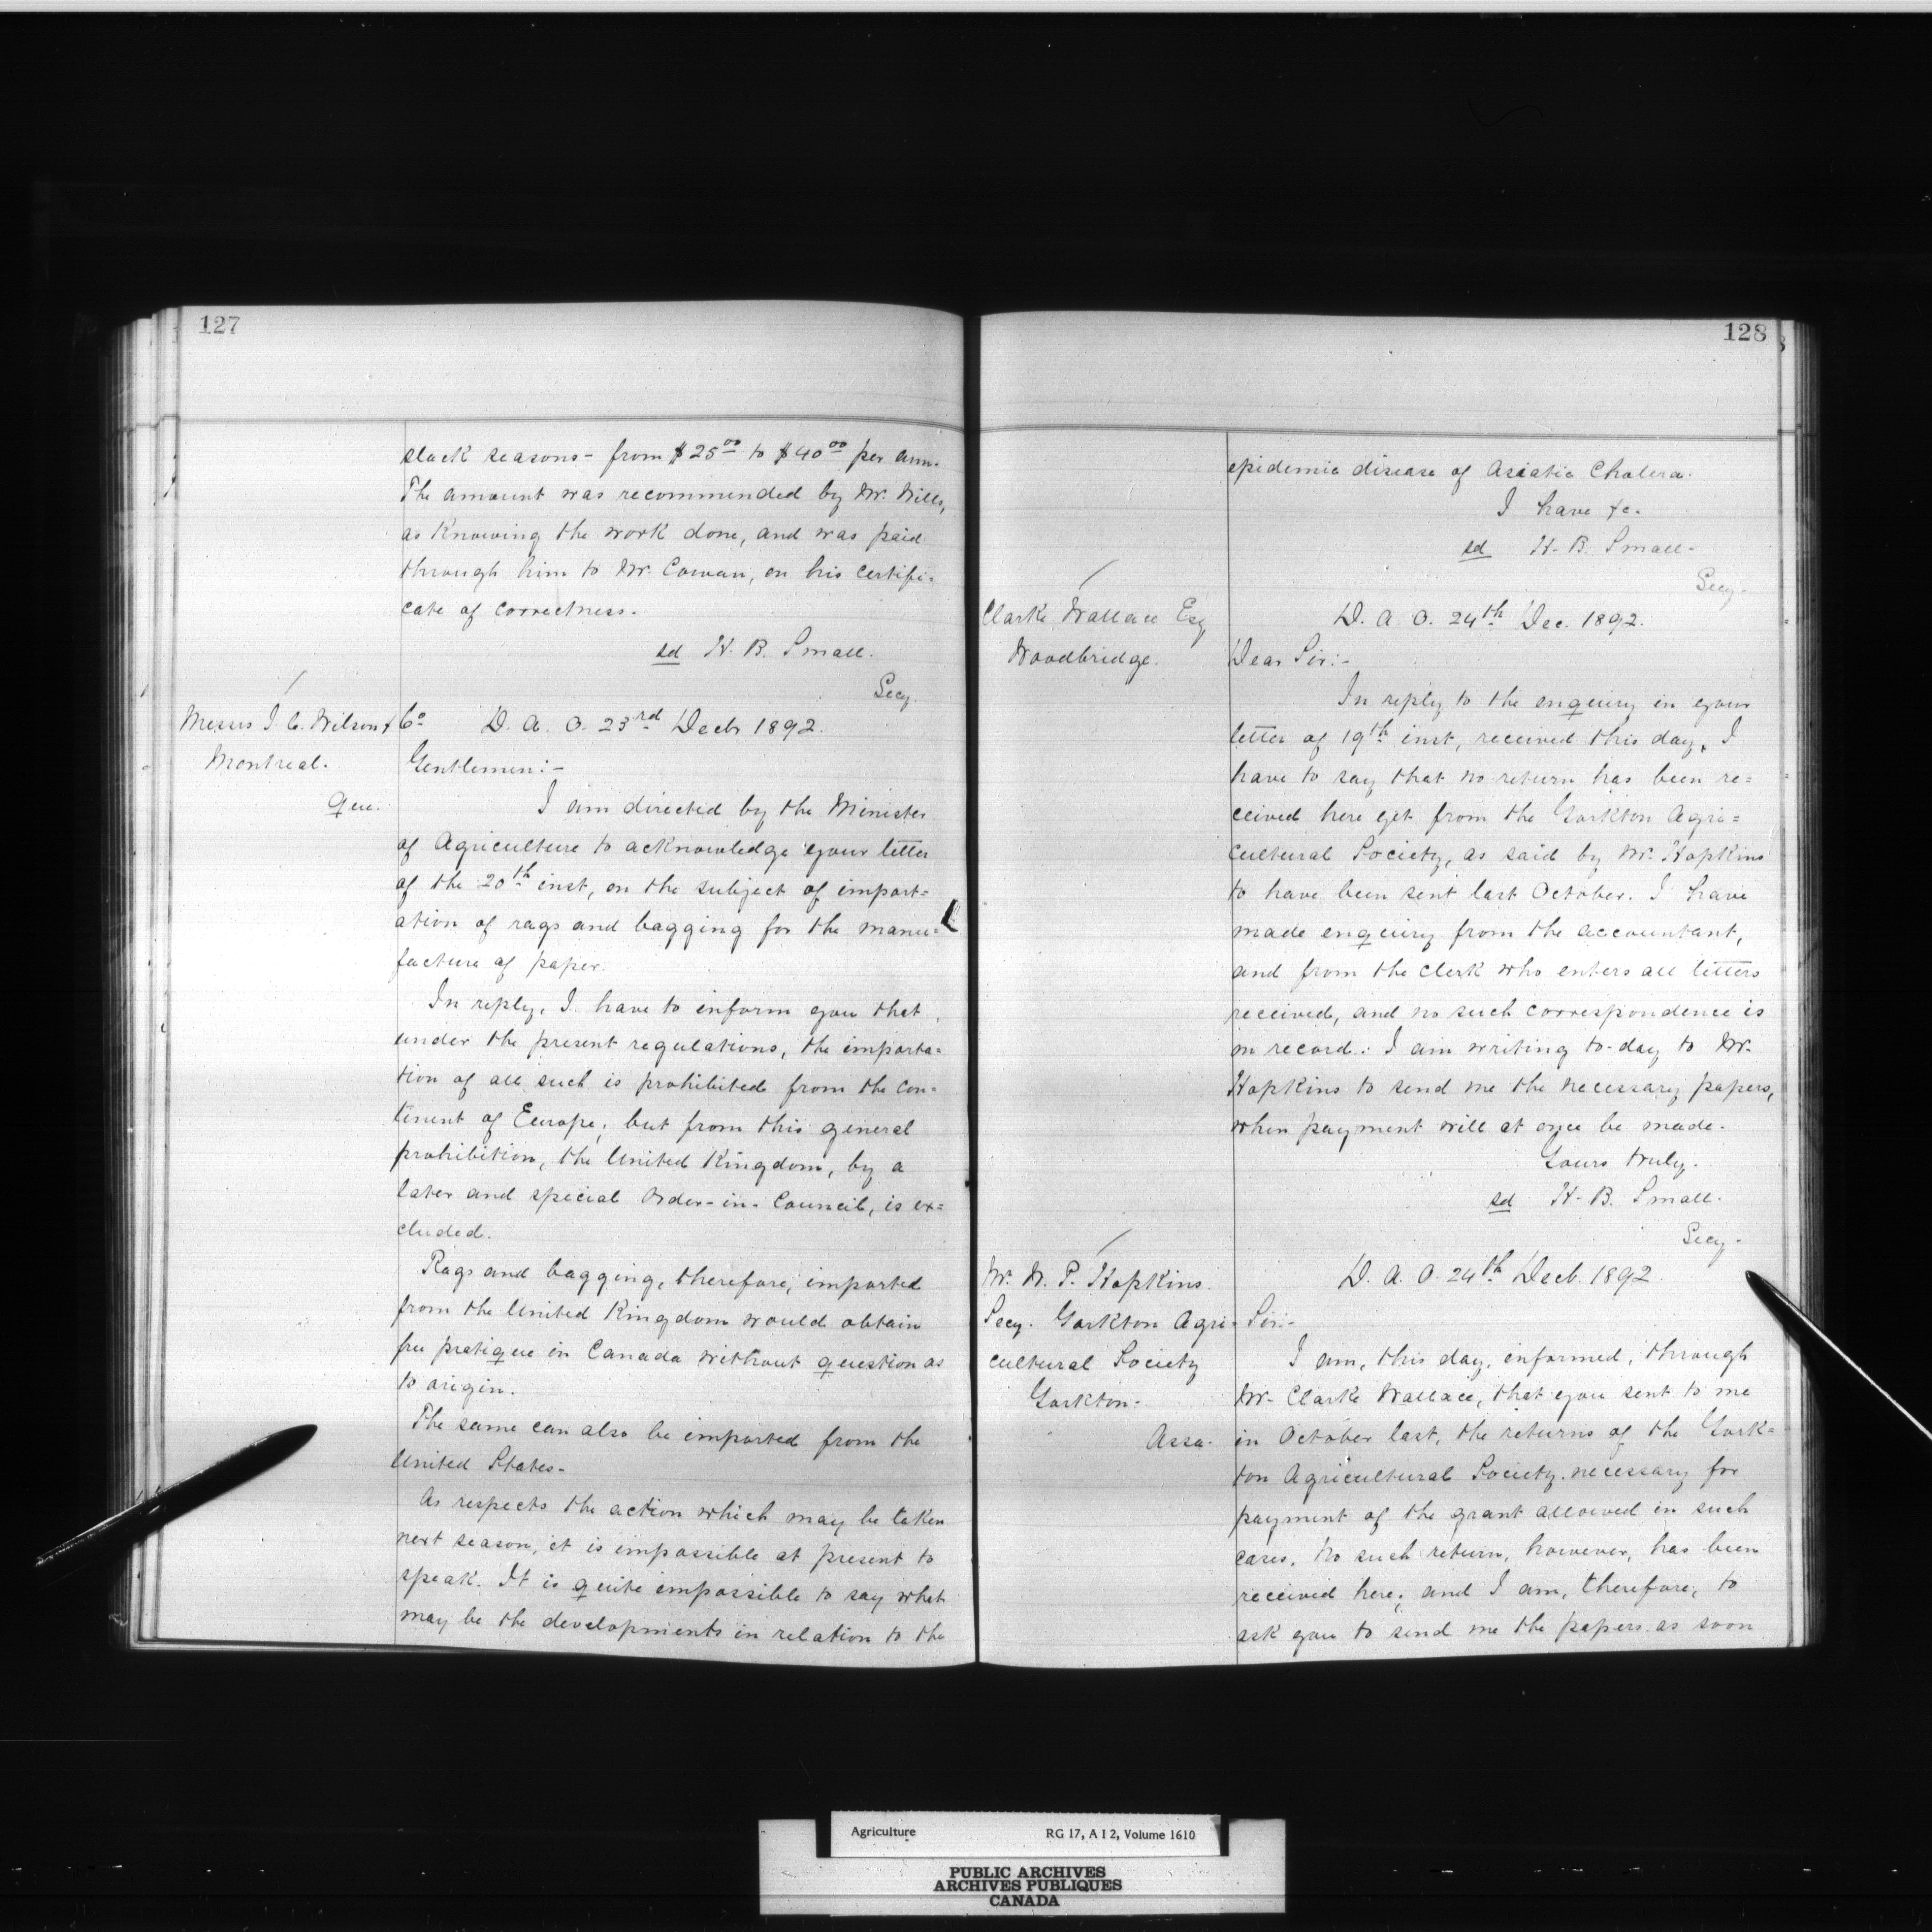 127
slack seasons - from $25.00 to $40.00 per ann.
The amount was recommended by Mr. Wills,
as knowing the work done, and was paid
through him to Mr. Cowan, on his certifi-
cate of correctness.
sd H. B. Small.
Secy.
Messrs J. C. Wilson & Co
Montreal.
Que.
D. A. O. 23rd Decb 1892.
Gentlemen:-
I am directed by the Minister
of Agriculture to acknowledge your letter
of the 20th inst, on the subject of import=
ation of rags and bagging for the manu=
facture of paper.
In reply, I have to inform you that
under the present regulations, the importa=
tion of all such is prohibited from the con=
tinent of Europe; but from this general
prohibition, the United Kingdom, by a
later and special Order-in-Council, is ex=
cluded.
Rags and bagging, therefore, imported
from the United Kingdom would obtain
free pratique in Canada without question as
to origin.
The same can also be imported from the
United States.
As respects the action which may be taken
next season, it is impossible at present to
speak. It is quite impossible to say what
may be the developments in relation to the
128
epidemic disease of Asiatic Cholera.
I have &c.
sd H. B. Small.
Secy.
Clarke Wallace Esq
Woodbridge.
D. A. O. 24th Dec. 1892.
Dear Sir:-
In reply to the enquiry in your
letter of 19th inst, received this day, I
have to say that no return has been re=
ceived here yet from the Yorkton Agri=
cultural Society, as said by Mr. Hopkins
to have been sent last October. I have
made enquiry from the accountant,
and from the clerk who enters all letters
received, and no such correspondence is
on record. I am writing to-day to Mr.
Hopkins to send me the necessary papers,
when payment will at once be made.
Yours truly.
sd H. B. Small.
Secy.
Mr. W. P. Hopkins.
Secy. Yorkton Agri-
cultural Society
Yorkton.
Assa.
D. A. O. 24th Decb. 1892
Sir:-
I am, this day, informed, through
Mr. Clarke Wallace, that you sent to me
in October last, the returns of the York=
ton Agricultural Society necessary for
payment of the grant allowed in such
cases. No such return, however, has been
received here; and I am, therefore, to
ask you to send me the papers as soon
Agriculture RG 17, A I 2, Volume 1610
PUBLIC ARCHIVES
ARCHIVES PUBLIQUES
CANADA